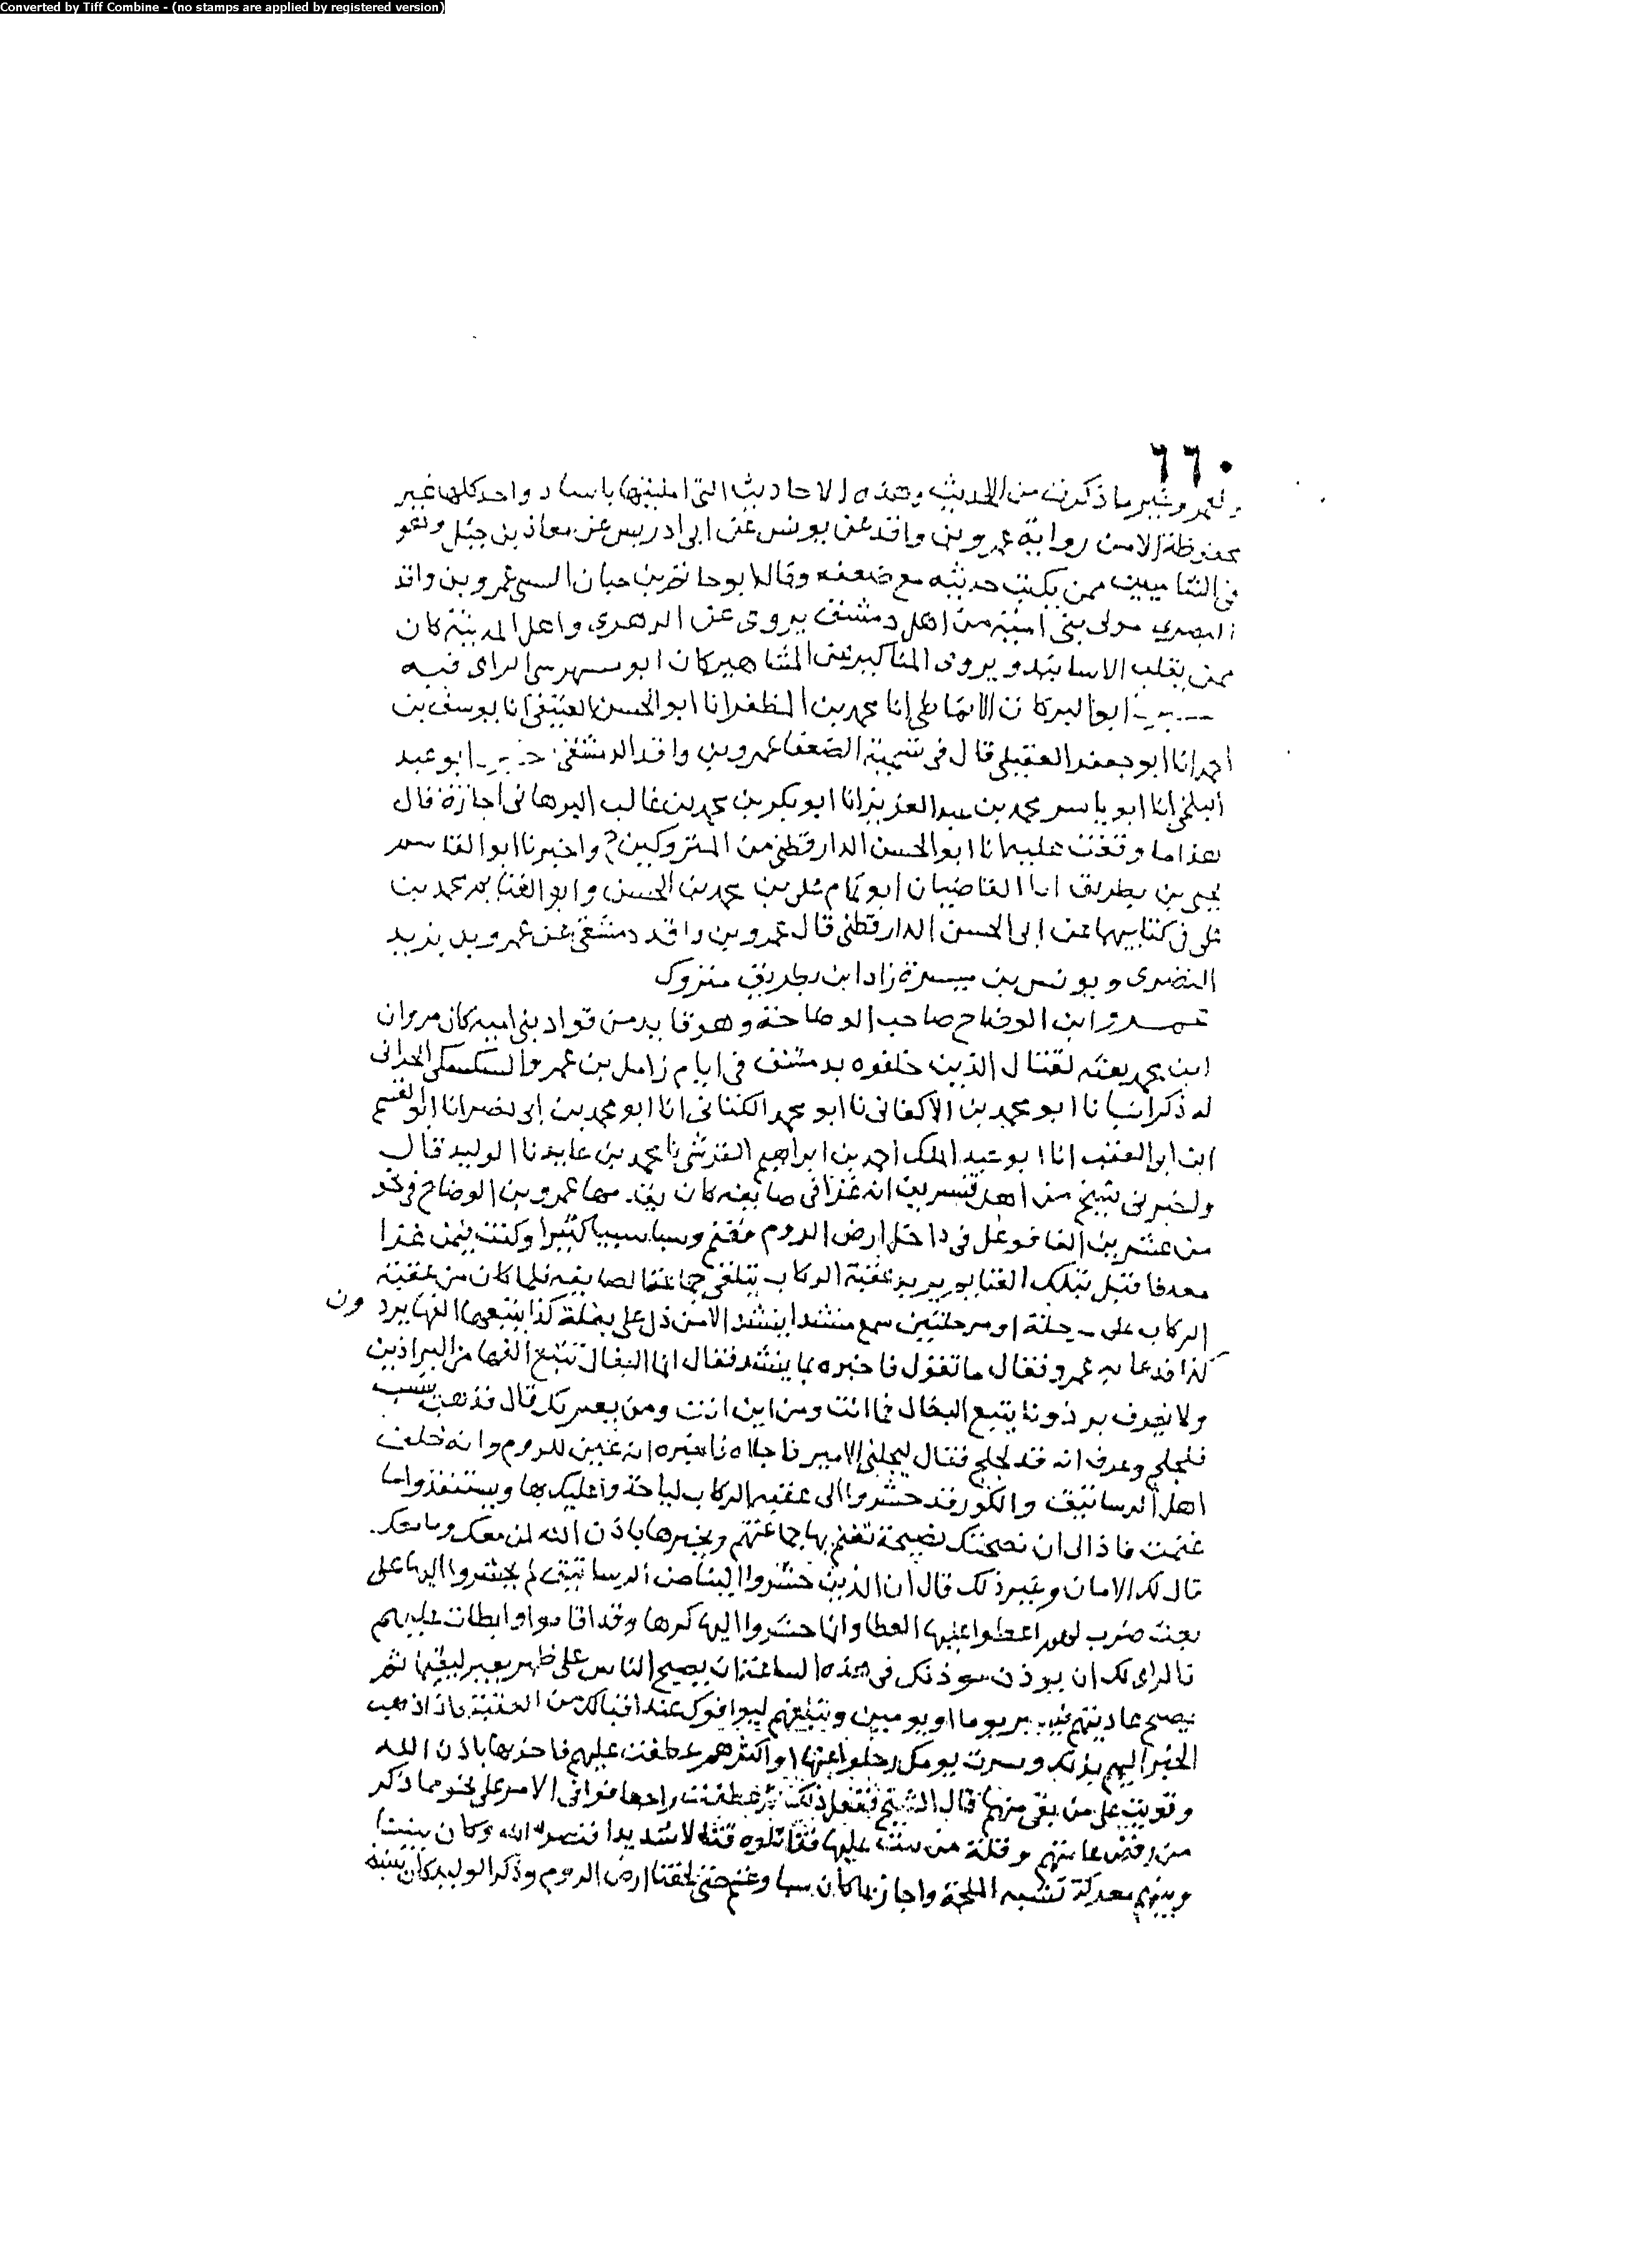 Converted by Tiff Combine - (no stamps are applied by registered version)
٦٦٠
ولعمرو غير ما ذكرت من الحديث وهذه الاحاديث التي امليتها باسناد واحد كلها غير
محفوظة الا من رواية عمرو بن واقد عن يونس عن ابي ادريس عن معاذ بن جبل وهو
في الشاميين ممن يكتب حديثه مع ضعفه وقال ابو حاتم بن حبان البستي عمرو بن واقد
البصري مولى بني امية من اهل دمشق يروى عن الزهري واهل المدينة كان
ممن يقلب الاسانيد ويروى المناكير عن المشاهير كان ابو مسهر سي الراى فيه
ابو البركات الانماطي انا محمد بن المظفر انا ابو الحسن العتيقي انا يوسف بن
احمد انا ابو جعفر العقيلي قال في تسمية الضعفا عمرو بن واقد الدمشقي ابو عبد
البلخي انا ابو ياسر محمد بن عبد العزيز انا ابو بكر بن محمد بن غالب البرقاني اجازة قال
هذا ما وقفت عليه انا ابو الحسن الدارقطني من المتروكين واخبرنا ابو القاسم
يحيى بن بطريق انا القاضيان ابو تمام علي بن محمد بن الحسن وابو الغنايم محمد بن
علي في كتابيهما عن ابي الحسن الدارقطني قال عمرو بن واقد دمشقي عن عمرو بن يزيد
النضرى ويونس بن ميسرة زاد ابن بطريق متروك
عمرو ابن الوضاح صاحب الوضاحية وهو قايد من قواد بني امية كان مروان
ابن محمد بعثه لقتال الذين خلفوه بدمشق في ايام زامل بن عمرو السكسكي الحراني
له ذكر انبانا ابو محمد بن الاكفاني نا ابو محمد الكتاني انا ابو محمد بن ابي نصر انا ابو القسم
ابن ابي العقب انا ابو عبد الملك احمد بن ابراهيم القرشي نا محمد بن عايد نا الوليد قال
واخبرني شيخ من اهل قنسرين انه غزا في صايفه كان عمرو بن الوضاح في نحو
من عشرين الفا فوغل في داخل ارض الروم فغنم وسبا سبيا كثيرا وكنت فيمن غزا
معه فاقبل بتلك الغنايم يريد عقبة الركاب يتلقى جماعة الصايفه فلما كان من عقبة
الركاب على مرحلة او مرحلتين سمع منشدا ينشد الا من دل على بغلة كذا يتبعها الفها برذون
كذا فدعا به عمرو فقال ما تقول فاخبره بما ينشد فقال انما البغال تتبع الفها من البراذين
ولا نعرف برذونا يتبع البغال فما انت ومن اين انت ومن بعسكر قال فذهب
فلجلج وعرف انه قد لجلج فقال ليخلني الامير فاخلاه فاخبره انه عين للروم وانه خلف
اهل الرساتيق والكور قد حشروا الى عقبه الركاب لياخذوا عليك بها ويستنقذوا ما
غنمت فما ذا لى ان نصحتك نصيحة تغنم بها جماعتهم وتخبرها باذن الله لمن معك وما معك
قال لك الامان وغير ذلك قال ان الذين حشروا الينا من الرساتيق لم يحشروا اليها على
بعث ضرب لهم اعطوا عليها العطا وانما حشروا اليها كرها وقد اقاموا وابطات عليهم
فالراى لك ان يوذن موذنك في هذه الساعة ان يصبح الناس على ظهر يعبر لبقيتها ثم
يوما او يومين العقبة فاذا ذهب
الخبر اليهم بذلك وسرت يومك رحلوا عنها او اكثرهم عطفت عليهم فاخذها باذن الله
وقويت على من بقي منهم قال الشيخ ففعل ذلك ثم عطفت راجعا فوافى الامر على نحو مما ذكر
من رفض عامتهم وقلة من ثبت عليها فقاتلوه قتالا شديدا فنصره الله وكان بيننا
وبينهم معركة تشبه الملحمة واجاز بما كان سبا وغنم حتى لحقنا ارض الروم وذكر الوليد كان